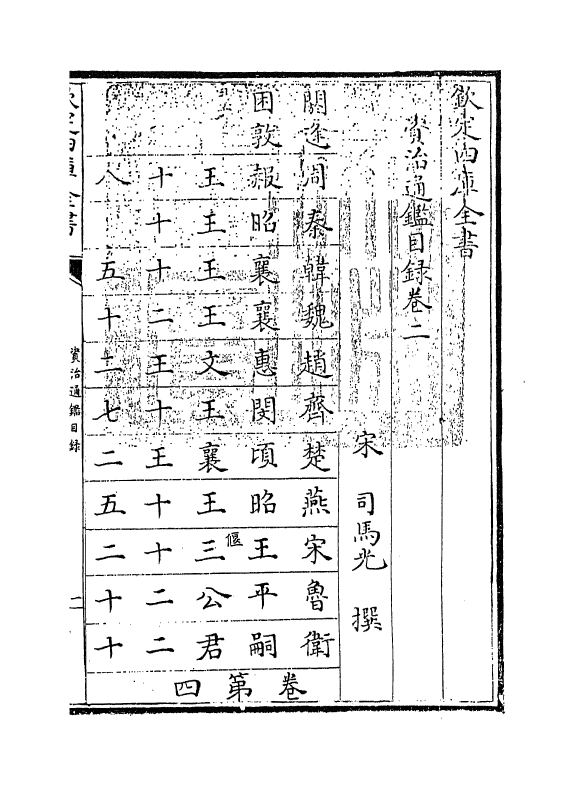 欽定四庫全書
資治通鑑目録卷二
宋 司馬光 撰
閼逢困敦
周赧王十八
秦昭王十
韓襄王十五
魏襄王二十
趙惠文王二
齊閔王十七
楚頃襄王二
燕昭王十五
宋王偃三十二
魯平公二十
衛嗣君二十
卷第四
欽定四庫全書
資治通鑑目録
二